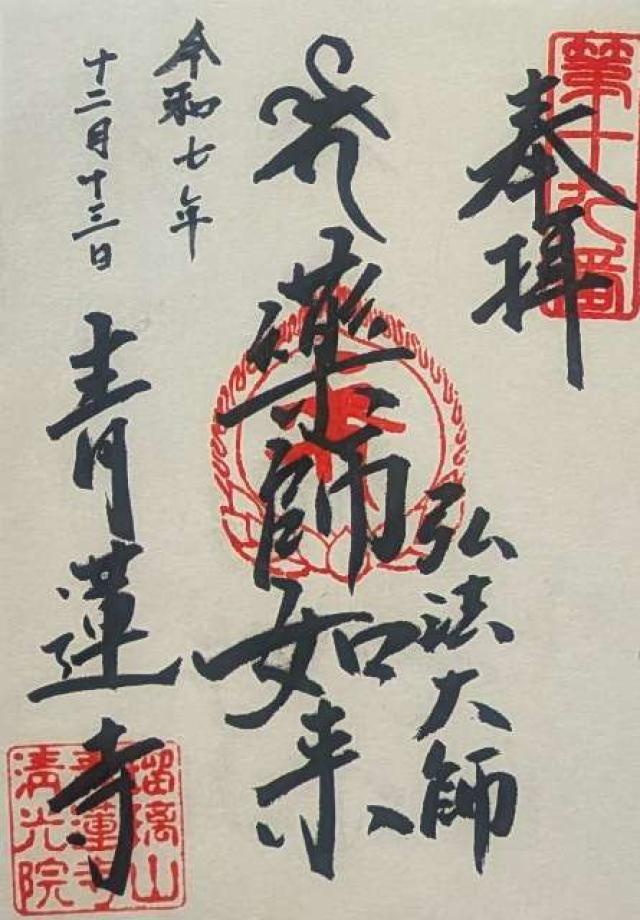 第十九番
奉拝
弘法大師
薬師如来
令和七年
十二月十三日
青蓮寺
瑠璃山
青蓮寺
清光院